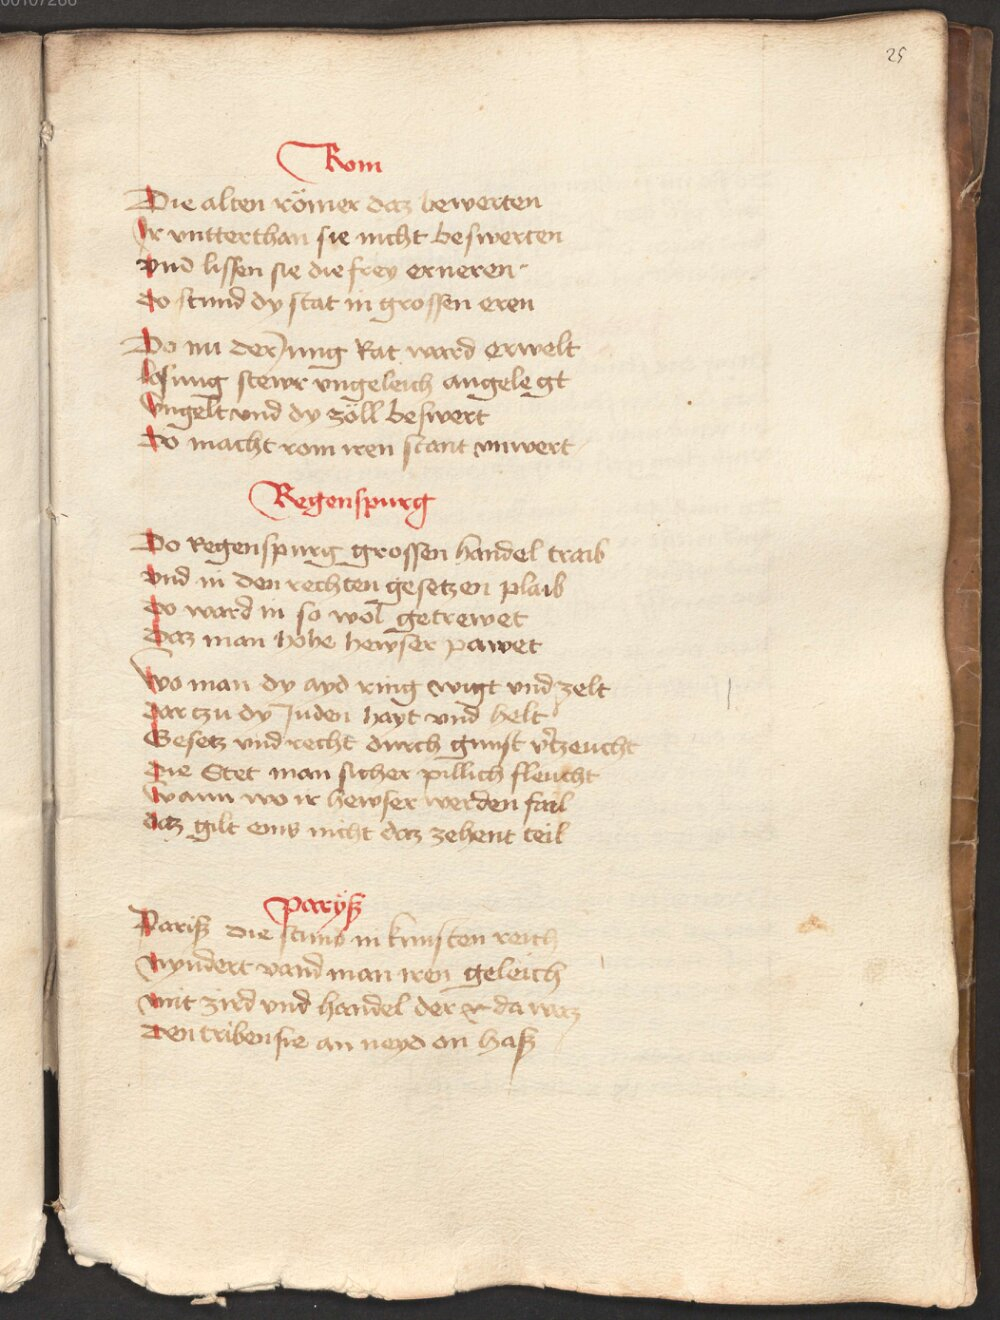 25
Rom
Die alten römer daz bewerten
Ir vntterthan sie nicht beswerten
vnd lissen sie die frey erneren
do stund dy stat in grossen eren
Do nu der Jung Rat ward erwelt
losung stewr vngeleich angelegt
Vngelt vnd dy zöll beswert
do macht rom iren stant vnwert
Regenspurg
Do Regenspurg grossen handel traib
vnd in den rechten gesetzen plaib
do ward in so wol getrewet
Daz man hohe hewser pawet
Wo man dy ayd ring wigt vnd zelt
dar czu dy Juden hayt vnd helt
Gesetz vnd recht durch gunst v̉tzeucht
die Stet man sicher pillich fleucht
Wann wo ir hewser werden fail
daz gilt eins nicht daz zehent teil
paryß
Pariß die stund in kunsten reich
Nyndert vand man iren geleich
mit zird vnd handel der da waz
den triben sie an neyd on haß